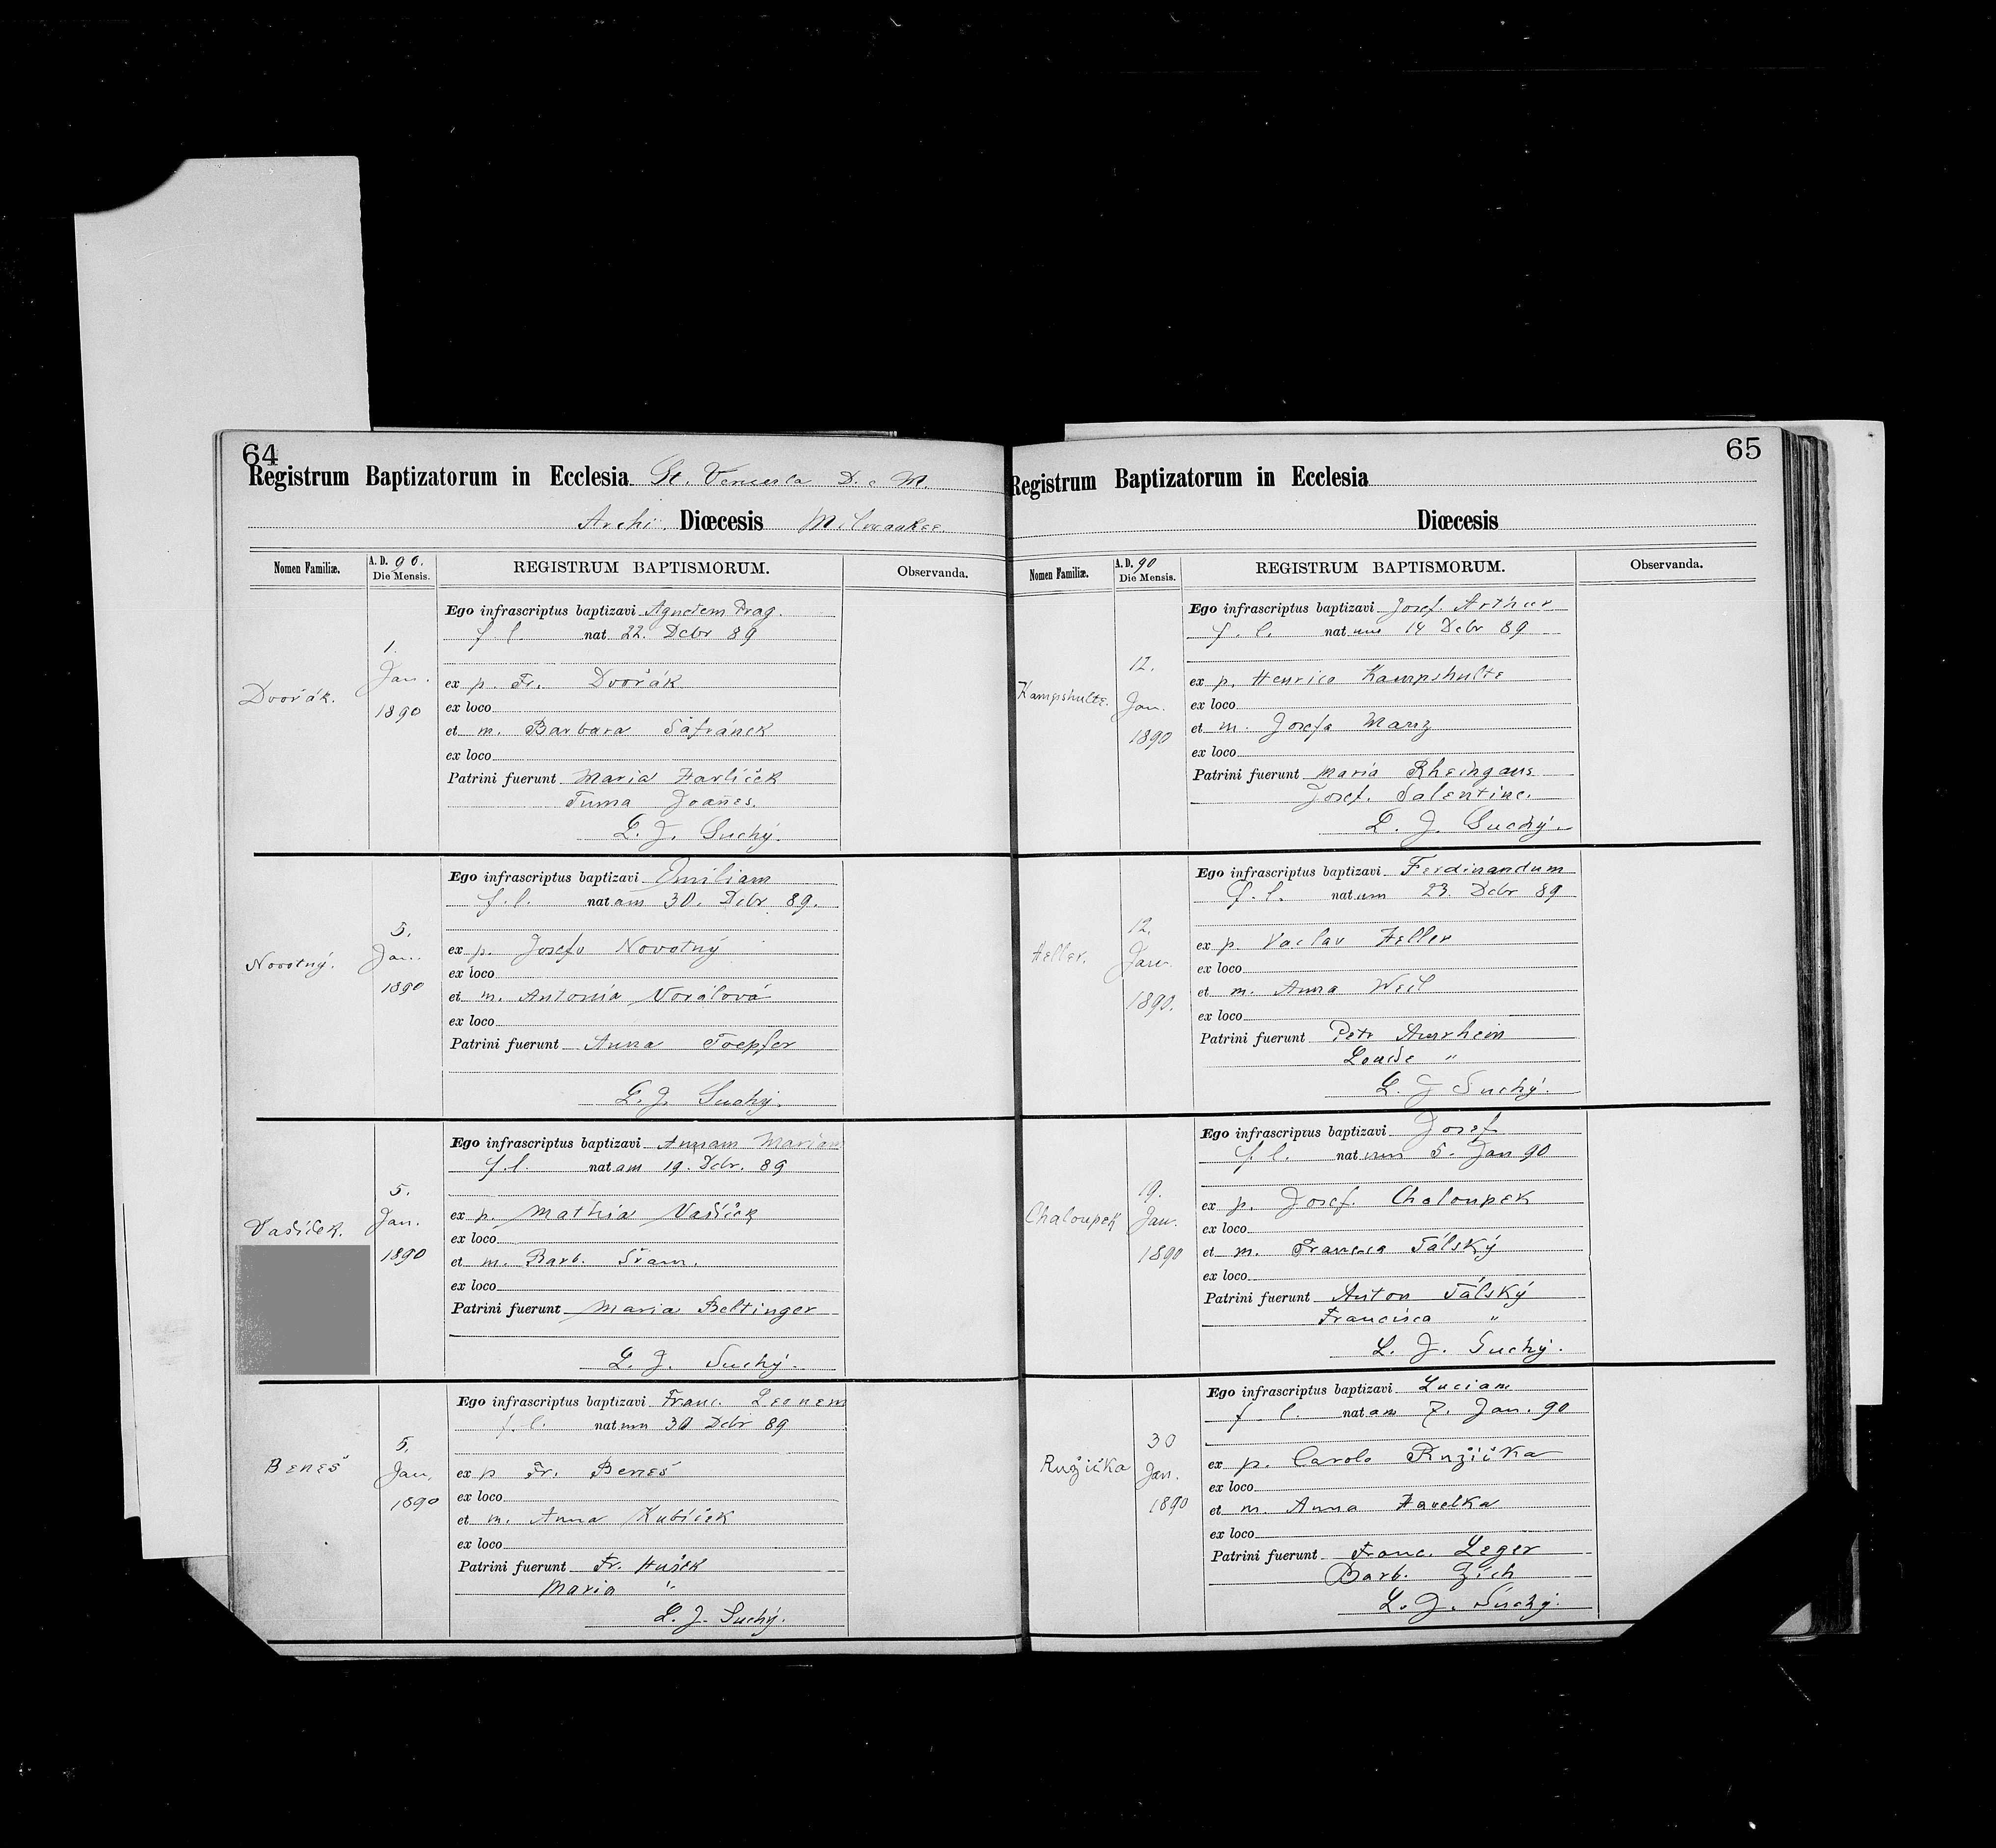 64
Registrum Baptizatorum in Ecclesia St. Vencesla D. e M.
Archi. Diœcesis Milwaukee.
Nomen Familiæ.
A. D. 90.
Die Mensis.
REGISTRUM BAPTISMORUM.
Observanda.
Dvořák.
1.
Jan.
1890
Ego infrascriptus baptizavi Agnetem Prag.
f. l. nat 22. Debr 89
ex p. Fr. Dvořák
ex loco
et m. Barbara Šafránek
ex loco
Patrini fuerunt Maria Havlíček
Tuma Joañes.
L. J. Suchý.
Novotný.
5.
Jan.
1890
Ego infrascriptus baptizavi Emiliam
f. l. natam 30. Debr 89.
ex p. Josefo Novotný
ex loco
et m. Antonia Voralová
ex loco
Patrini fuerunt Anna Toepfer
L. J. Suchý.
Vašíček.
5.
Jan.
1890
Ego infrascriptus baptizavi Annam Mariam
f. l. natam 19. Debr. 89
ex p. Mathia Vašíček
ex loco
et m. Barb. Šram.
ex loco
Patrini fuerunt Maria Beltinger
L. J. Suchý.
Beneš
5.
Jan.
1890
Ego infrascriptus baptizavi Franc. Leonem
f. l. natum 30 Debr 89
ex p Fr. Beneš
ex loco
et m. Anna Kubíček
ex loco
Patrini fuerunt Fr. Hušek
Maria "
L. J. Suchý.
65
Registrum Baptizatorum in Ecclesia
Diœcesis
Nomen Familiæ.
A. D. 90
Die Mensis.
REGISTRUM BAPTISMORUM.
Observanda.
Kampshulte.
12.
Jan.
1890
Ego infrascriptus baptizavi Josef. Arthur
f. l. natum 14 Debr 89
ex p. Henrico Kampshulte
ex loco
et m. Josefa Marz
ex loco
Patrini fuerunt Maria Rheingans
Josef. Salentine.
L. J. Suchý.
Heller.
12.
Jan.
1890.
Ego infrascriptus baptizavi Ferdinandum
f. l. natum 23. Debr 89
ex p. Vaclav Heller
ex loco
et m. Anna Weil
ex loco
Patrini fuerunt Petr Amrhein
Louise "
L. J Suchý.
Chaloupek
19.
Jan.
1890
Ego infrascriptus baptizavi Josef
f. l. natum 5. Jan 90
ex p. Josef Chaloupek
ex loco
et m. Francisca Tálský
ex loco
Patrini fuerunt Anton Tálský
Francisca "
L. J. Suchý.
Ružička
30
Jan.
1890
Ego infrascriptus baptizavi Luciam
f. l. natam 7. Jan. 90
ex p. Carolo Ružička
ex loco
et m. Anna Havelka
ex loco
Patrini fuerunt Franc. Leger
Barb. Zich
L. J. Suchý.